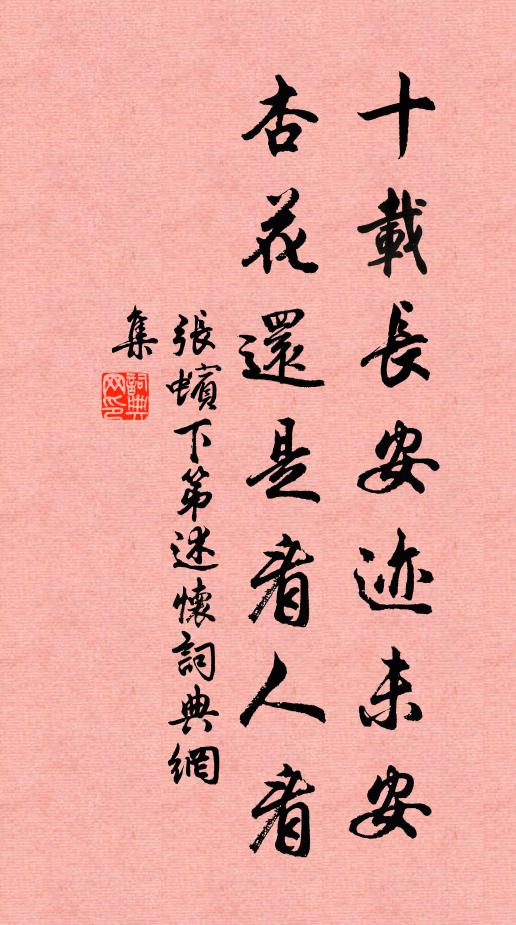 十載長安迹未安
杏花還是看人看
張蠙下第述懷詞典網
集
詞典网印